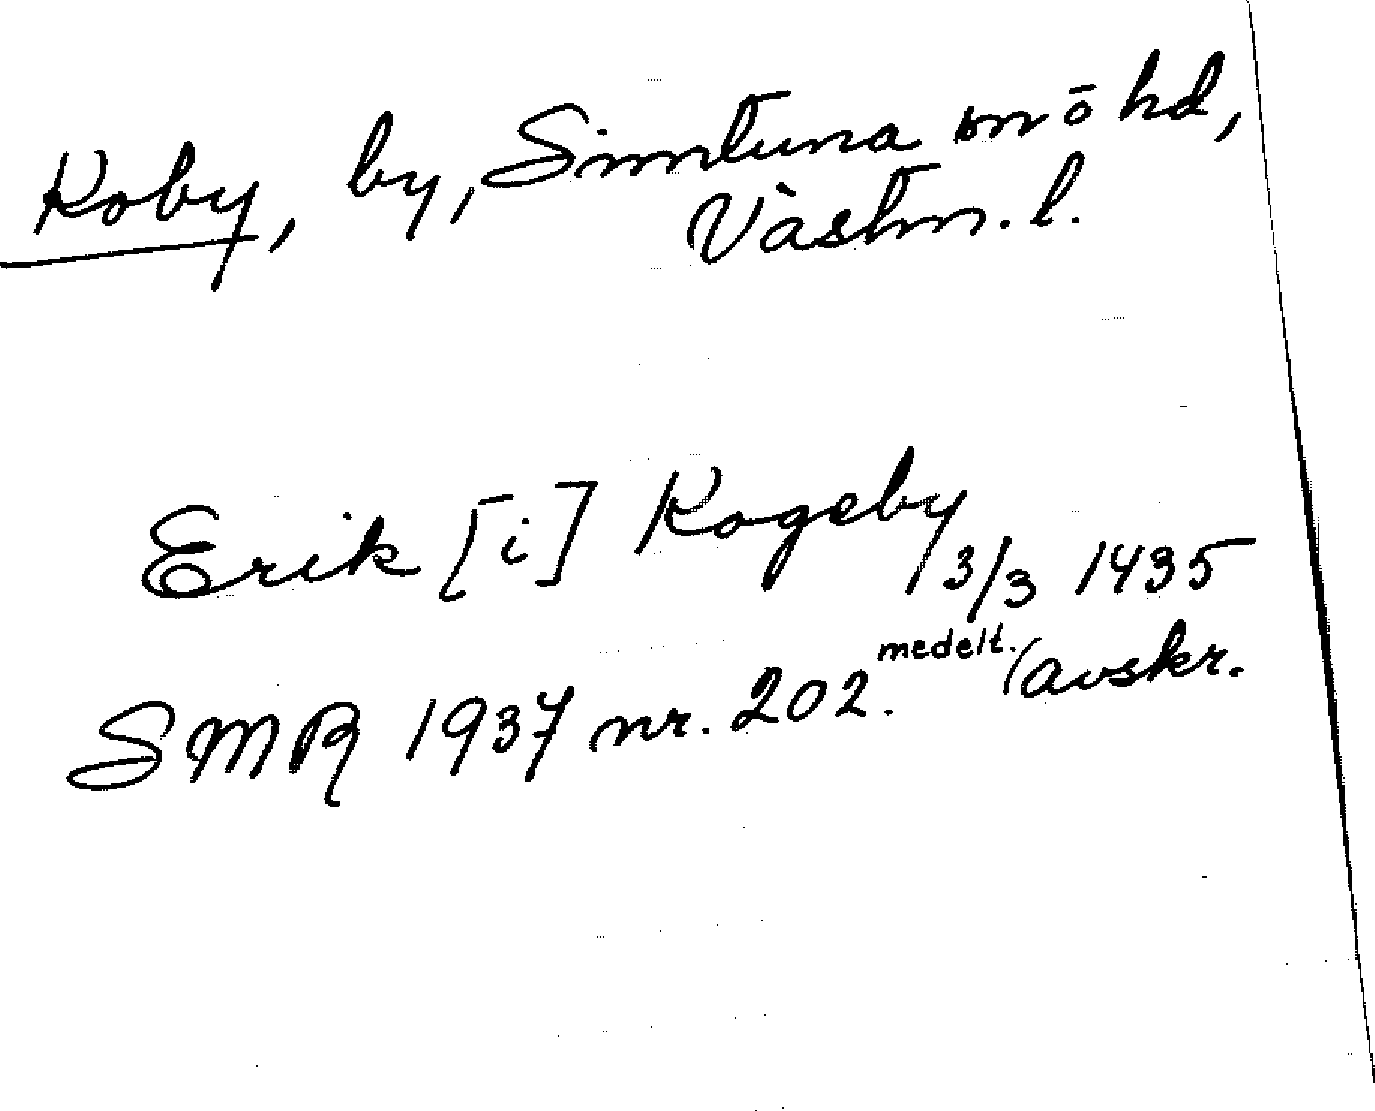 Koby, by, Simtuna sn o hd,
Västm. l.
Erik [i] Kogeby 3/3 1435
SMR 1937 nr. 202. medelt. (avskr.